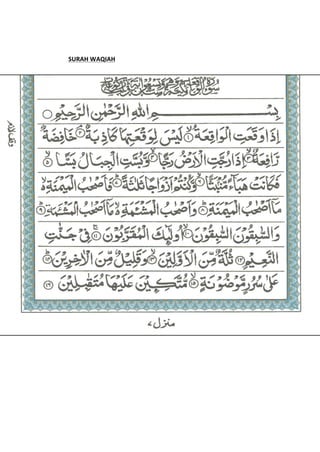 SURAH WAQIAH
بِسْمِ اللّٰهِ الرَّحْمٰنِ الرَّحِيْمِ
اِذَا وَقَعَتِ الْوَاقِعَةُ ۙ‏﴿۱﴾ لَيْسَ لِوَقْعَتِهَا كَاذِبَةٌ ۘ‏﴿۲﴾ خَافِضَةٌ
رَّافِعَةٌ ۙ‏﴿۳﴾ اِذَا رُجَّتِ الْاَرْضُ رَجًّا ۙ‏﴿۴﴾ وَّبُسَّتِ الْجِبَالُ بَسًّا ۙ‏﴿۵﴾
فَكَانَتْ هَبَآءً مُّنْۢبَثًّا ۙ‏﴿۶﴾ وَّكُنْتُمْ اَزْوَاجًا ثَلٰثَةً ؕ‏﴿۷﴾ فَاَصْحٰبُ الْمَيْمَنَةِ ۙ
مَاۤ اَصْحٰبُ الْمَيْمَنَةِ ؕ‏﴿۸﴾ وَاَصْحٰبُ الْمَشْـَٔمَةِ ۙ مَاۤ اَصْحٰبُ الْمَشْـَٔمَةِ ؕ‏﴿۹﴾
وَالسّٰبِقُوْنَ السّٰبِقُوْنَ ۙ‏﴿۱۰﴾ اُولٰٓئِكَ الْمُقَرَّبُوْنَ ۚ‏﴿۱۱﴾ فِيْ جَنّٰتِ
النَّعِيْمِ ‏﴿۱۲﴾ ثُلَّةٌ مِّنَ الْاَوَّلِيْنَ ۙ‏﴿۱۳﴾ وَقَلِيْلٌ مِّنَ الْاٰخِرِيْنَ ؕ‏﴿۱۴﴾
عَلٰى سُرُرٍ مَّوْضُوْنَةٍ ۙ‏﴿۱۵﴾ مُّتَّكِـِٕيْنَ عَلَيْهَا مُتَقٰبِلِيْنَ ‏﴿۱۶﴾
منزل ۷